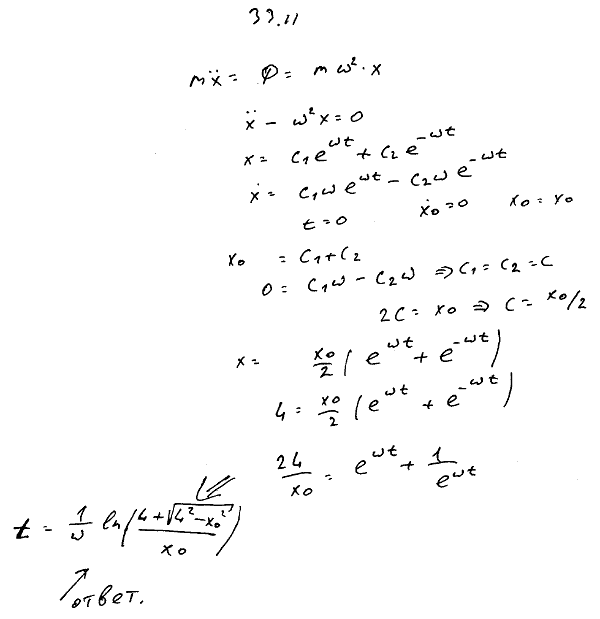 33.11
mẍ = Φ = mω²·x
ẍ - ω²x = 0
x = C₁e^ωt + C₂e^-ωt
ẋ = C₁ωe^ωt - C₂ωe^-ωt
t = 0 ẋ₀ = 0 x₀ = x₀
x₀ = C₁ + C₂
0 = C₁ω - C₂ω ⇒ C₁ = C₂ = C
2C = x₀ ⇒ C = x₀/2
x = x₀/2 (e^ωt + e^-ωt)
L = x₀/2 (e^ωt + e^-ωt)
2L/x₀ = e^ωt + 1/e^ωt
t = 1/ω ln((L + √(L² - x₀²))/x₀)
ответ.